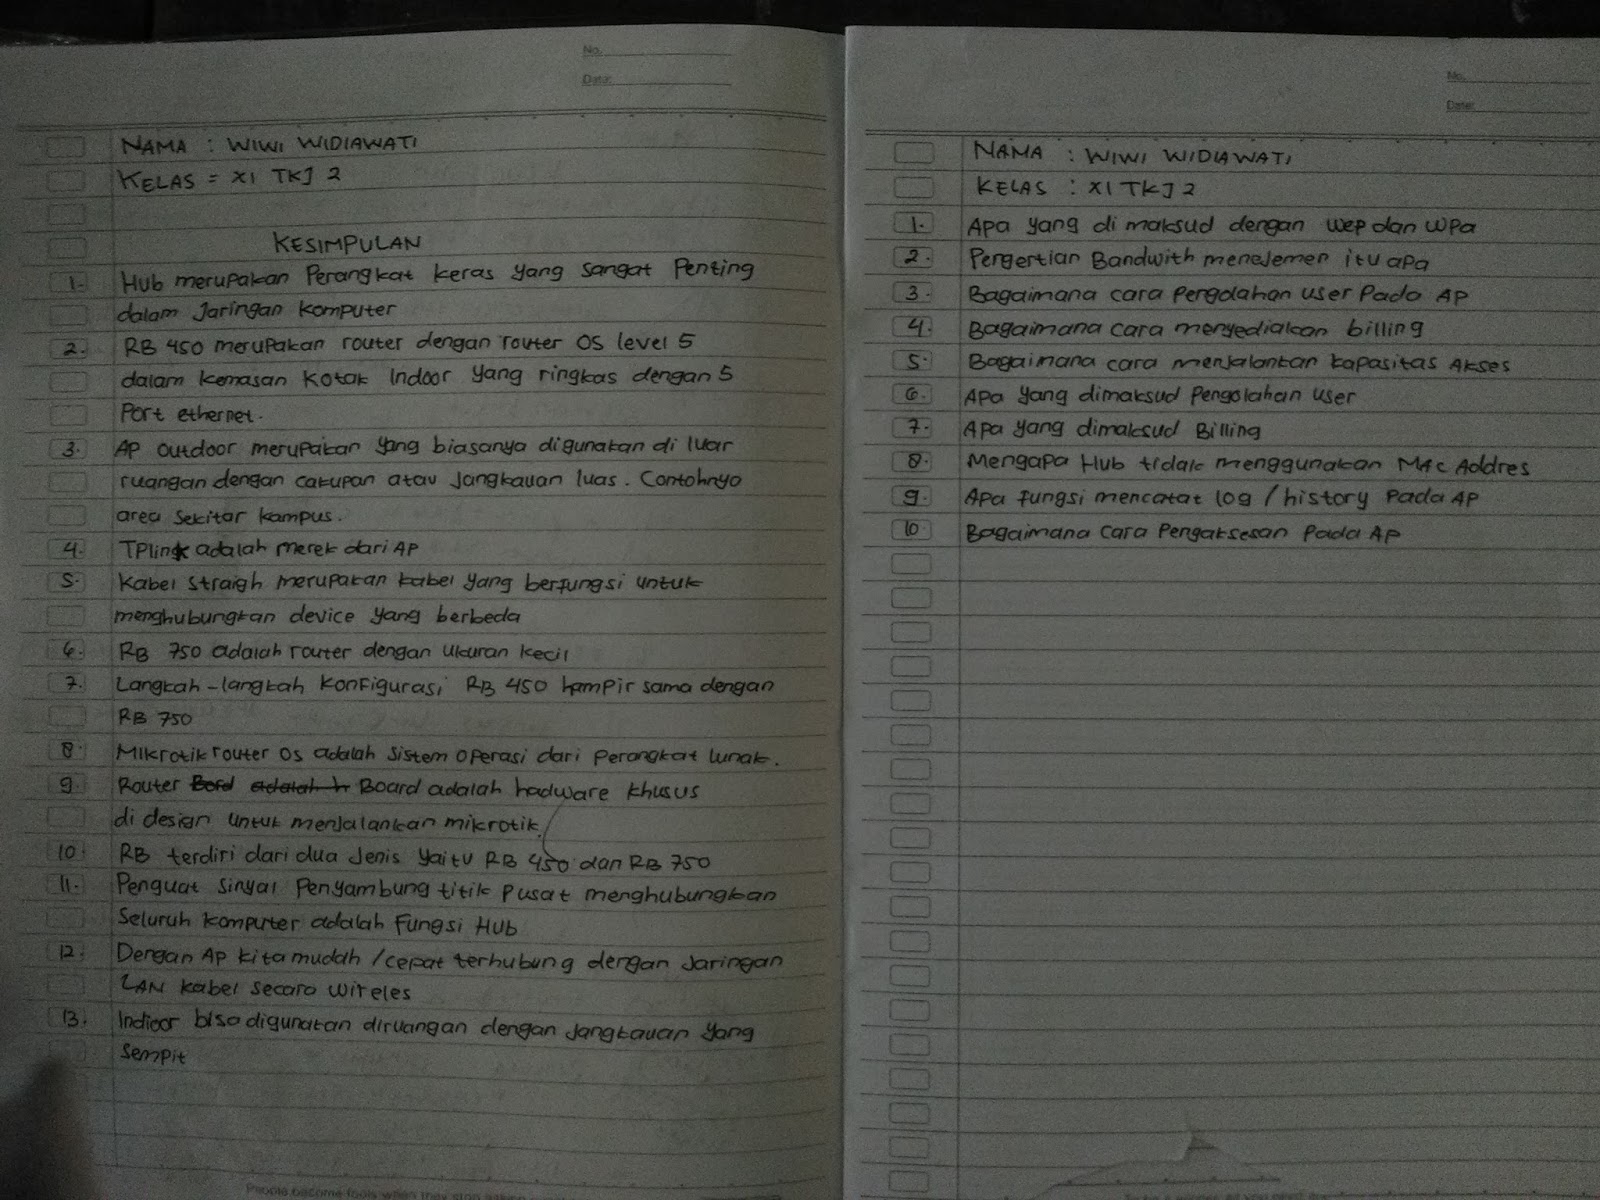 No.
Date:
NAMA : WIWI WIDIAWATI
KELAS = XI TKJ 2
KESIMPULAN
1. Hub merupakan Perangkat keras yang sangat Penting
dalam Jaringan komputer
2. RB 450 merupakan router dengan router OS level 5
dalam kemasan kotak Indoor yang ringkas dengan 5
Port ethernet.
3. AP outdoor merupakan yang biasanya digunakan di luar
ruangan dengan cakupan atau Jangkauan luas. Contohnya
area sekitar kampus.
4. TPlink adalah merek dari AP
5. Kabel straigh merupakan kabel yang berfungsi untuk
menghubungkan device yang berbeda
6. RB 750 adalah router dengan ukuran kecil
7. Langkah-langkah Konfigurasi RB 450 hampir sama dengan
RB 750
8. Mikrotik router OS adalah sistem operasi dari perangkat lunak.
9. Router Bord adalah h Board adalah hadware khusus
di design untuk menjalankan mikrotik.
10. RB terdiri dari dua Jenis yaitu RB 450 dan RB 750
11. Penguat sinyal Penyambung titik pusat menghubungkan
Seluruh komputer adalah Fungsi Hub
12. Dengan AP kita mudah /cepat terhubung dengan Jaringan
LAN kabel secara wireles
13. Indioor bisa digunakan diruangan dengan jangkauan yang
sempit
No.
Date:
NAMA : WIWI WIDIAWATI
KELAS : XI TKJ 2
1. Apa yang di maksud dengan wep dan WPa
2. Pengertian Bandwith menejemen itu apa
3. Bagaimana cara Pengolahan user Pada AP
4. Bagaimana cara menyediakan billing
5. Bagaimana cara menjalankan kapasitas Akses
6. Apa yang dimaksud Pengolahan user
7. Apa yang dimaksud Billing
8. Mengapa Hub tidak menggunakan MAC Addres
9. Apa fungsi mencatat log / history Pada AP
10 Bagaimana Cara Pengaksesan Pada AP